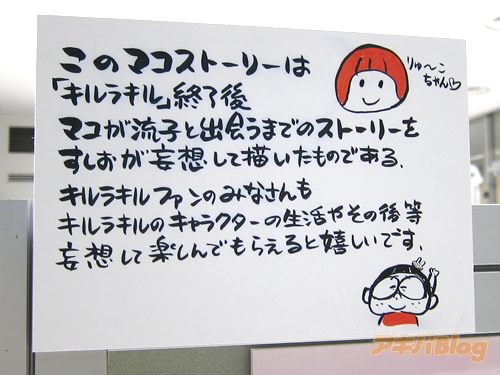 このマコストーリーは
「キルラキル」終了後
マコが流子と出会うまでのストーリーを
すしおが妄想して描いたものである.
キルラキルファンのみなさんも
キルラキルのキャラクターの生活やその後等
妄想して楽しんでもらえると嬉しいです.
りゅ〜こ
ちゃん♡
アキバBlog